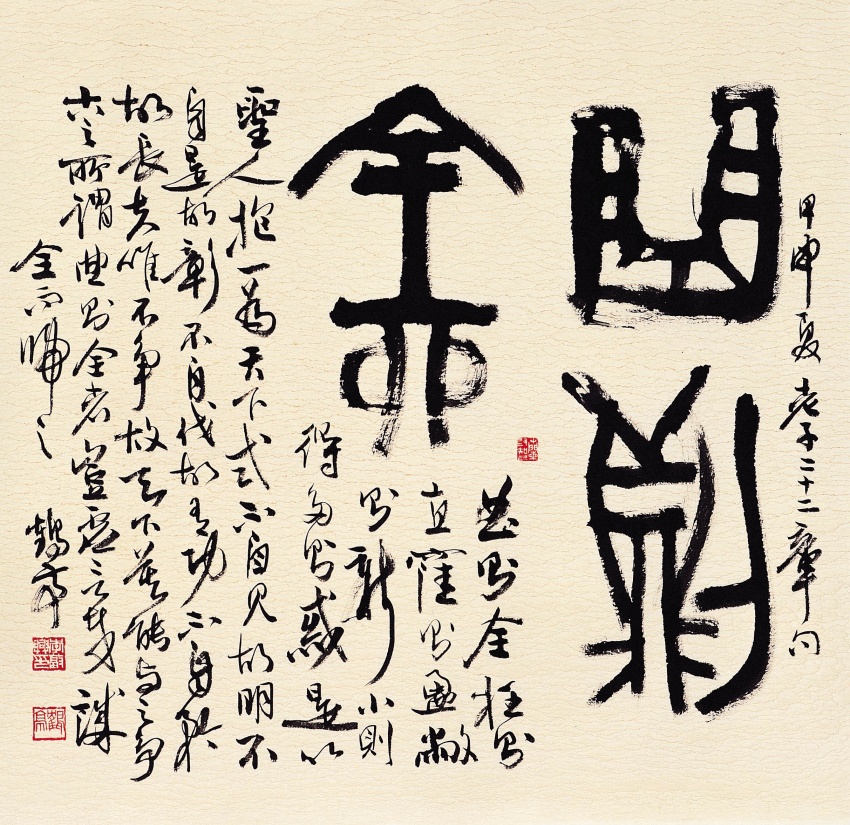 甲申夏 老子二十二章句
曲則
全
曲則全枉則
直窪則盈敝
則新小則
得多則惑是以
聖人抱一為天下式不自見故明不
自是故彰不自伐故有功不自矜
故長夫唯不爭故天下莫能与之爭
古之所謂曲則全者豈虛言哉誠
全而歸之